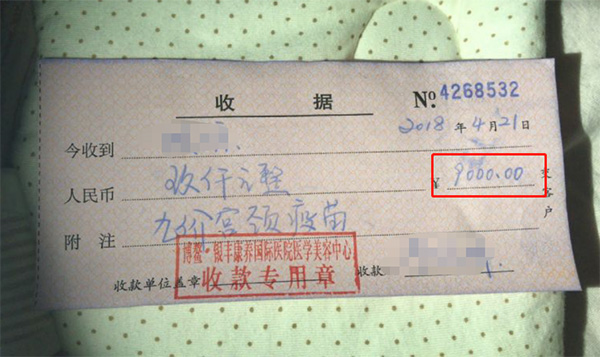 收 据
No. 4268532
2018 年 4 月 21 日
今收到
人民币 玖仟元整 ¥ 9000.00
附 注 九价宫颈疫苗
交客户
博鳌·银丰康养国际医院医学美容中心
收款专用章
收款单位盖章 收款